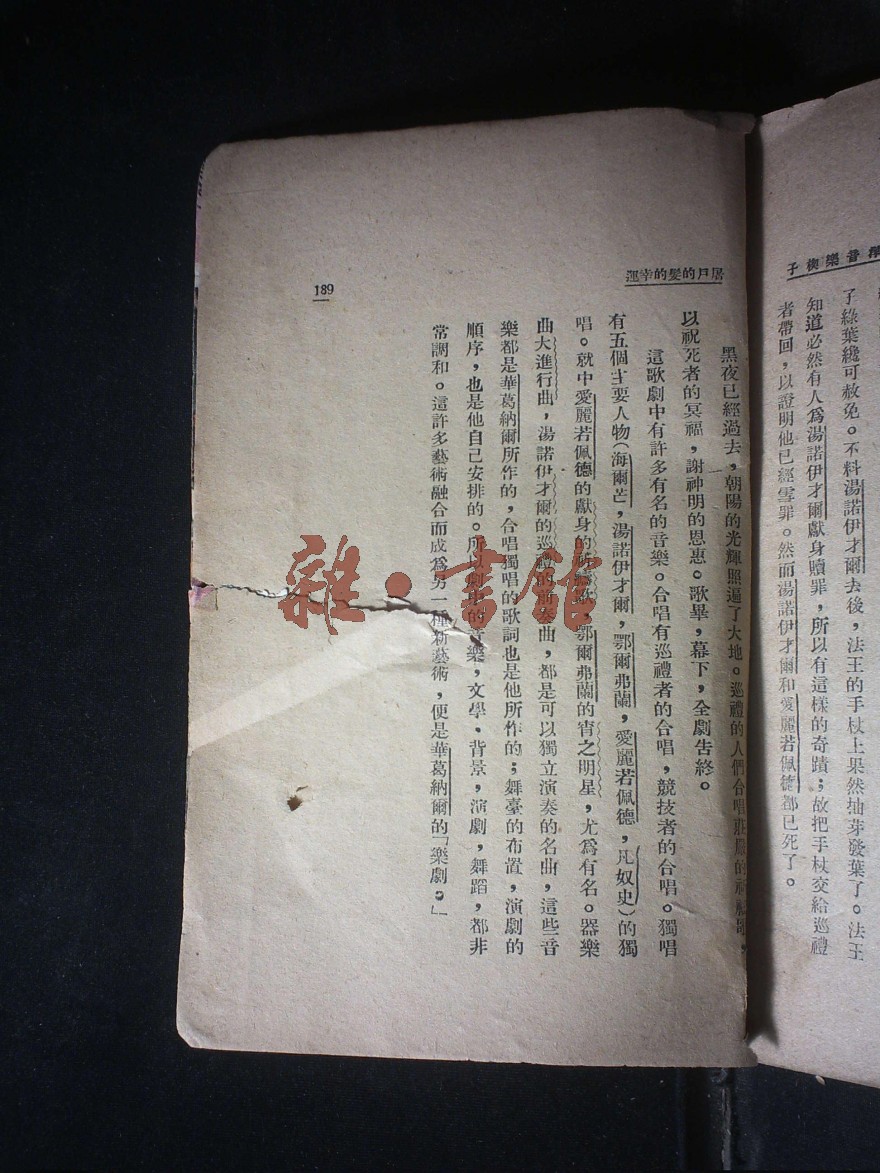 子綠葉纔可赦免。不料湯諾伊才爾去後，法王的手杖上果然抽芽發葉了。法王
知道必然有人爲湯諾伊才爾獻身贖罪，所以有這樣的奇蹟；故把手杖交給巡禮
者帶回，以證明他已經雪罪。然而湯諾伊才爾和愛麗若佩德都已死了。
音樂楔子
運幸的髮的戶屠
黑夜已經過去，朝陽的光輝照遍了大地。巡禮的人們合唱莊嚴的
以祝死者的冥福，謝神明的恩惠。歌畢，幕下，全劇告終。
這歌劇中有許多有名的音樂。合唱有巡禮者的合唱，競技者的合唱。獨唱
有五個主要人物（海爾芒，湯諾伊才爾，鄂爾弗蘭，愛麗若佩德，凡奴史）的獨
唱。就中愛麗若佩德的獻身的祈禱歌，鄂爾弗蘭的宵之明星，尤爲有名。器樂
曲大進行曲，湯諾伊才爾的巡禮的前奏曲，都是可以獨立演奏的名曲，這些音
樂都是華葛納爾所作的，合唱獨唱的歌詞也是他所作的；舞臺的布置，演劇的
順序，也是他自己安排的。所以劇中的音樂，文學，背景，演劇，舞蹈，都非
常調和。這許多藝術融合而成爲另一種新藝術，便是華葛納爾的「樂劇。」
189
雜·書館